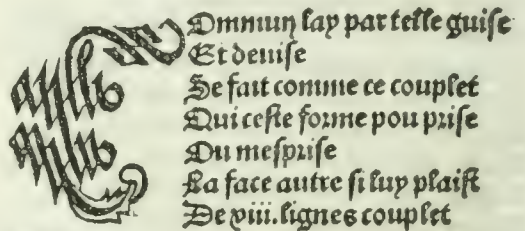 Commun lay par telle guise
Et deuise
Se fait comme ce couplet
Qui ceste forme pou prise
Ou mesprise
La face autre si luy plaist
De viii. lignes couplet